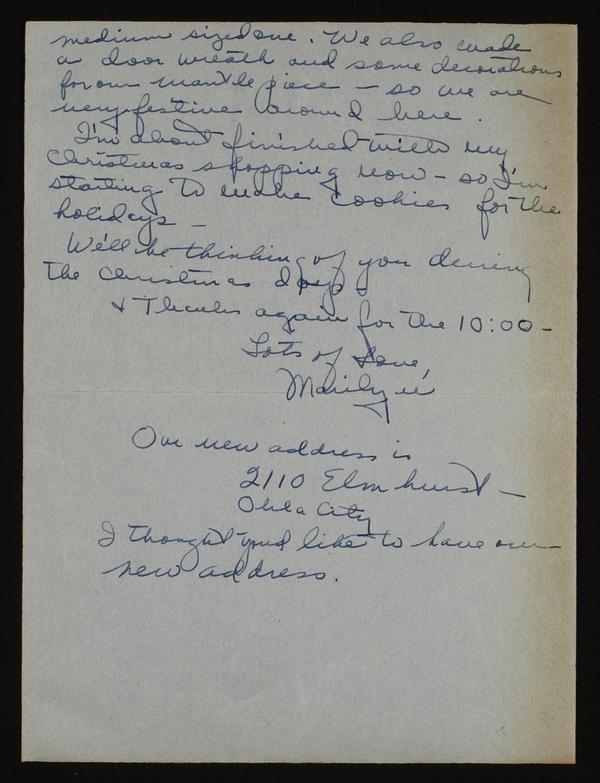 medium sized one. We also made
a door wreath and some decorations
for our mantle piece - so we are
very festive around here.
I'm about finished with my
Christmas shopping now - so I'm
starting to make cookies for the
holidays -
We'll be thinking of you during
the Christmas days
& Thanks again for the 10:00 -
Lots of Love,
Marilyn
Our new address is
2110 Elmhurst -
Okla City
I thought you'd like to have our
new address.